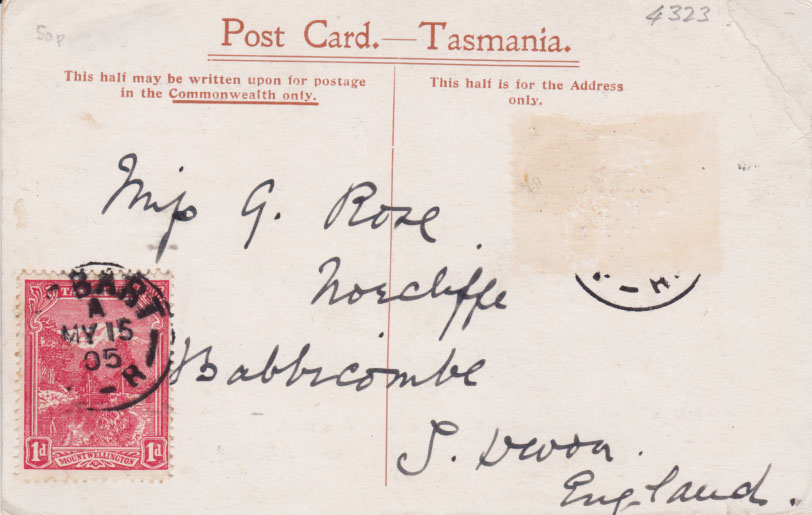 50p
4323
Post Card.—Tasmania.
This half may be written upon for postage
in the Commonwealth only.
This half is for the Address
only.
Miss G. Rose
Norcliffe
Babbicombe
S. Devon.
England.
BART
A
MY 15
05
H
1d MOUNT WELLINGTON 1d
H